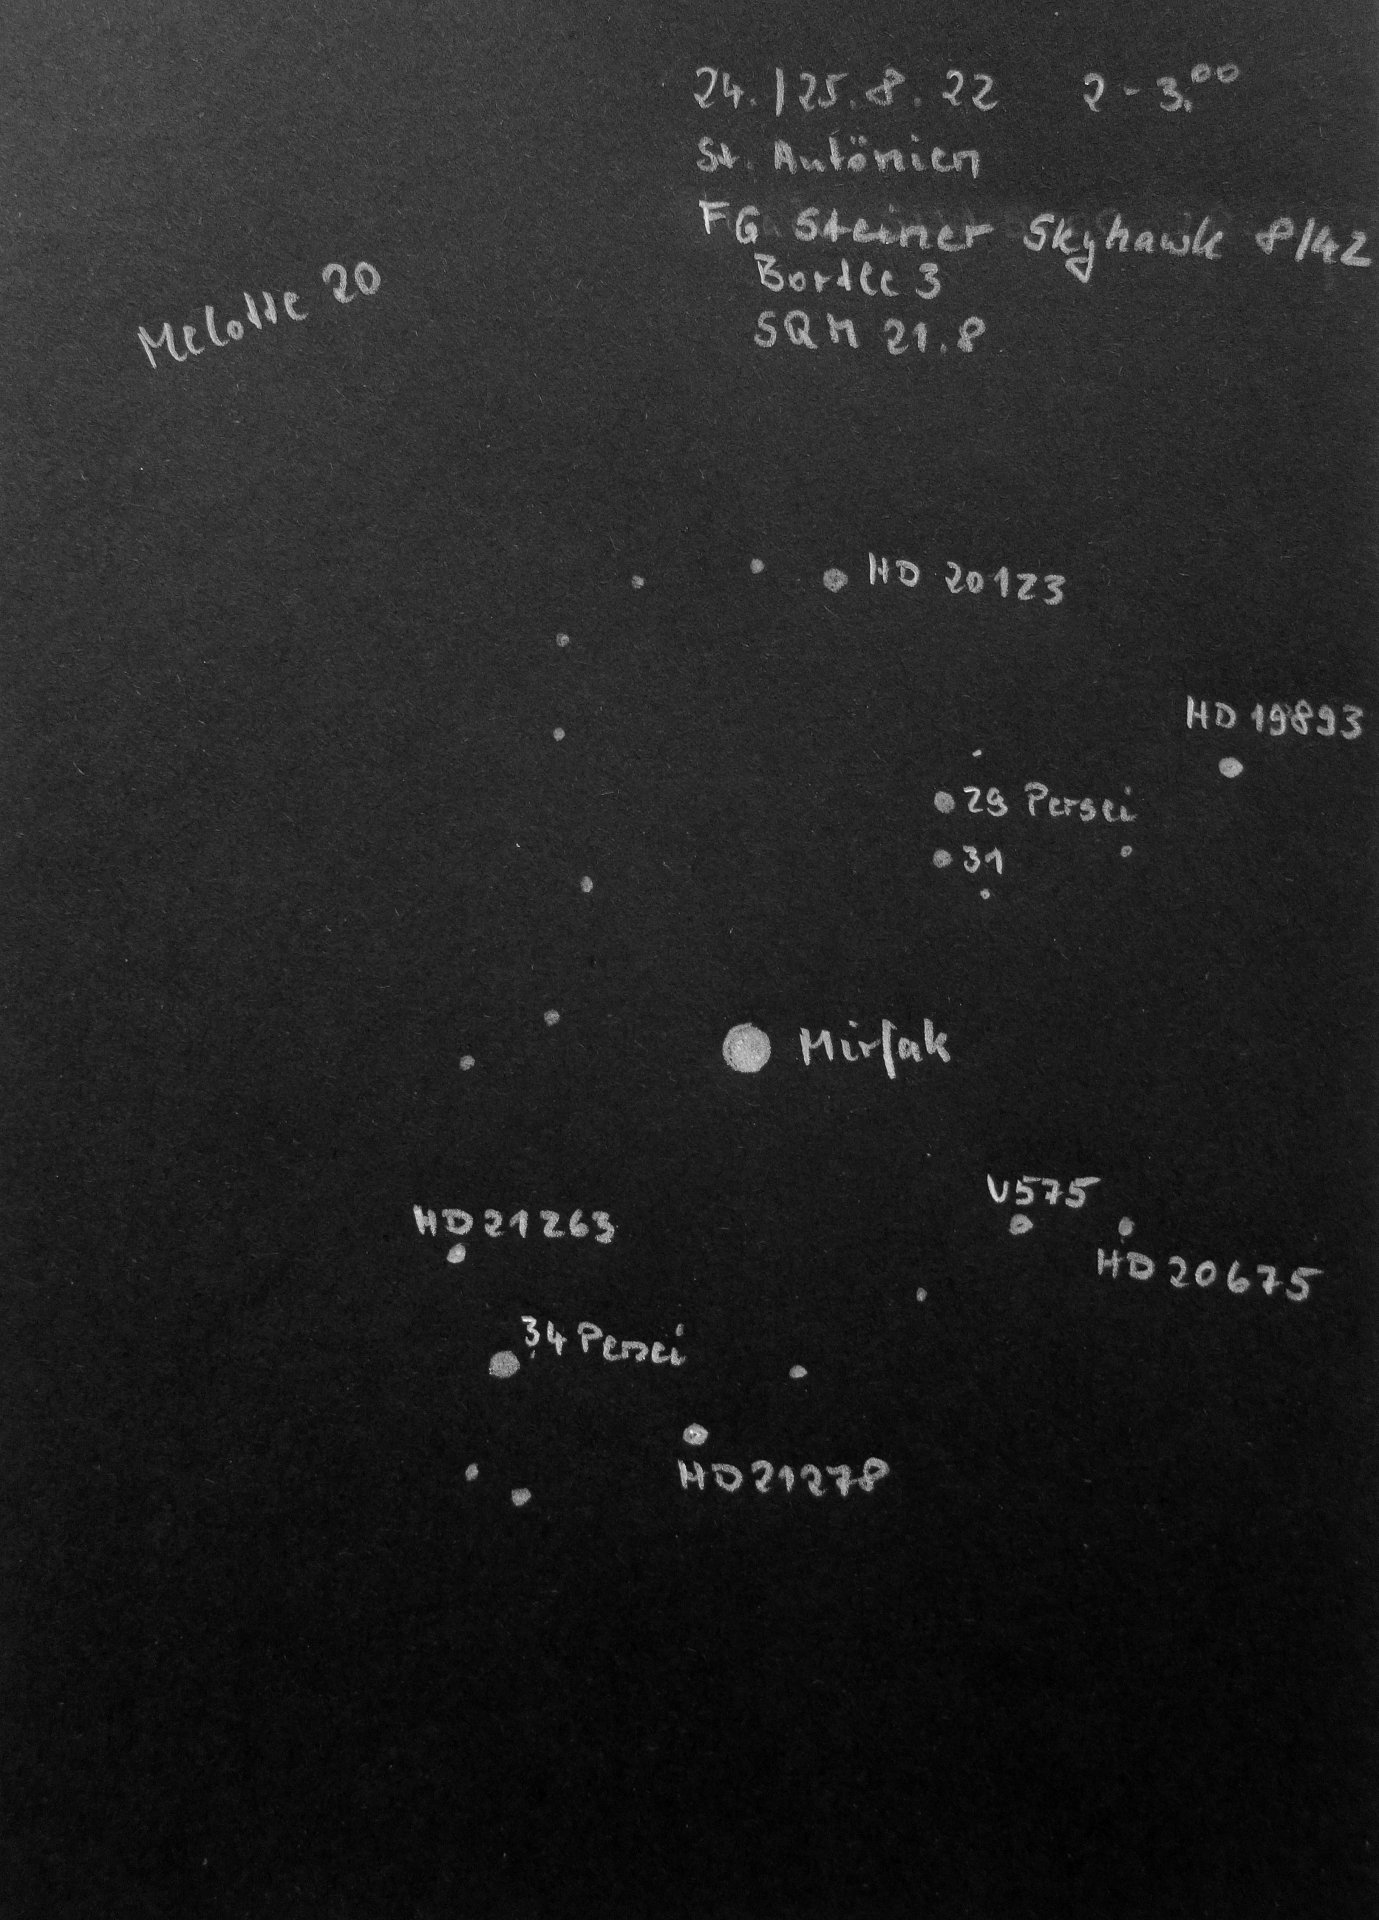 24./25.8.22 2-3.00
St. Antönien
FG Steiner Skyhawk 8/42
Bortle 3
SQM 21.8
Melotte 20
HD 20123
HD 19893
29 Persei
31
Mirfak
V575
HD 21263
HD 20675
34 Persei
HD 21278